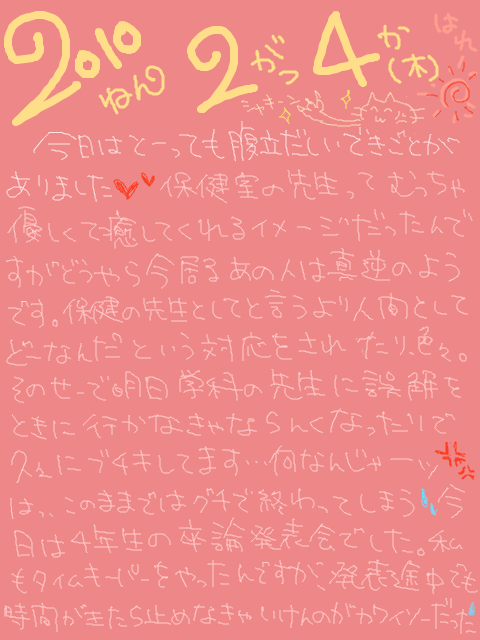 2010ねん 2がつ4か(木) はれ
シャキーン
今日はとーっても腹立だしいできごとが
ありました 保健室の先生ってむっちゃ
優しくて癒してくれるイメージだったんで
すがどうやら今居るあの人は真逆のよう
です。保健の先生としてと言うより人間として
どーなんだという対応をされたり、色々。
そのせーで明日学科の先生に誤解を
ときに行かなきゃならんくなったりで
久々にブチキしてます…何なんじゃーッ
はっ、このままではグチで終わってしまう 今
日は4年生の卒論発表会でした。私
もタイムキーパーをやったんですが、発表途中でも
時間が来たら止めなきゃいけんのがカワイソーだった